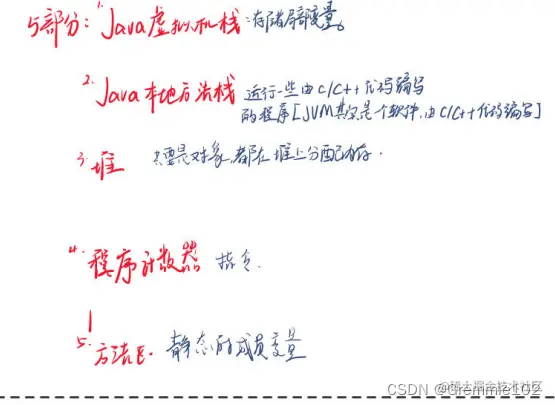 5部分: 1. Java虚拟机栈:存储局部变量。
2. Java本地方法栈 运行一些由C/C++代码编写
的程序[JVM其实是个软件,由C/C++代码编写]
3. 堆 只要是对象,都在堆上分配内存.
4. 程序计数器 指令.
5. 方法区. 静态的成员变量
@稀土掘金技术社区
CSDN @Gremmie102